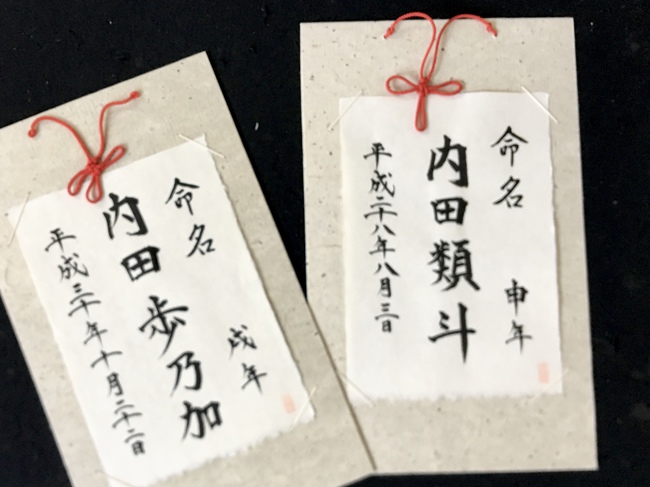 命名　申年
内田類斗
平成二十八年八月三日
命名　戌年
内田歩乃加
平成三十年十月二十二日